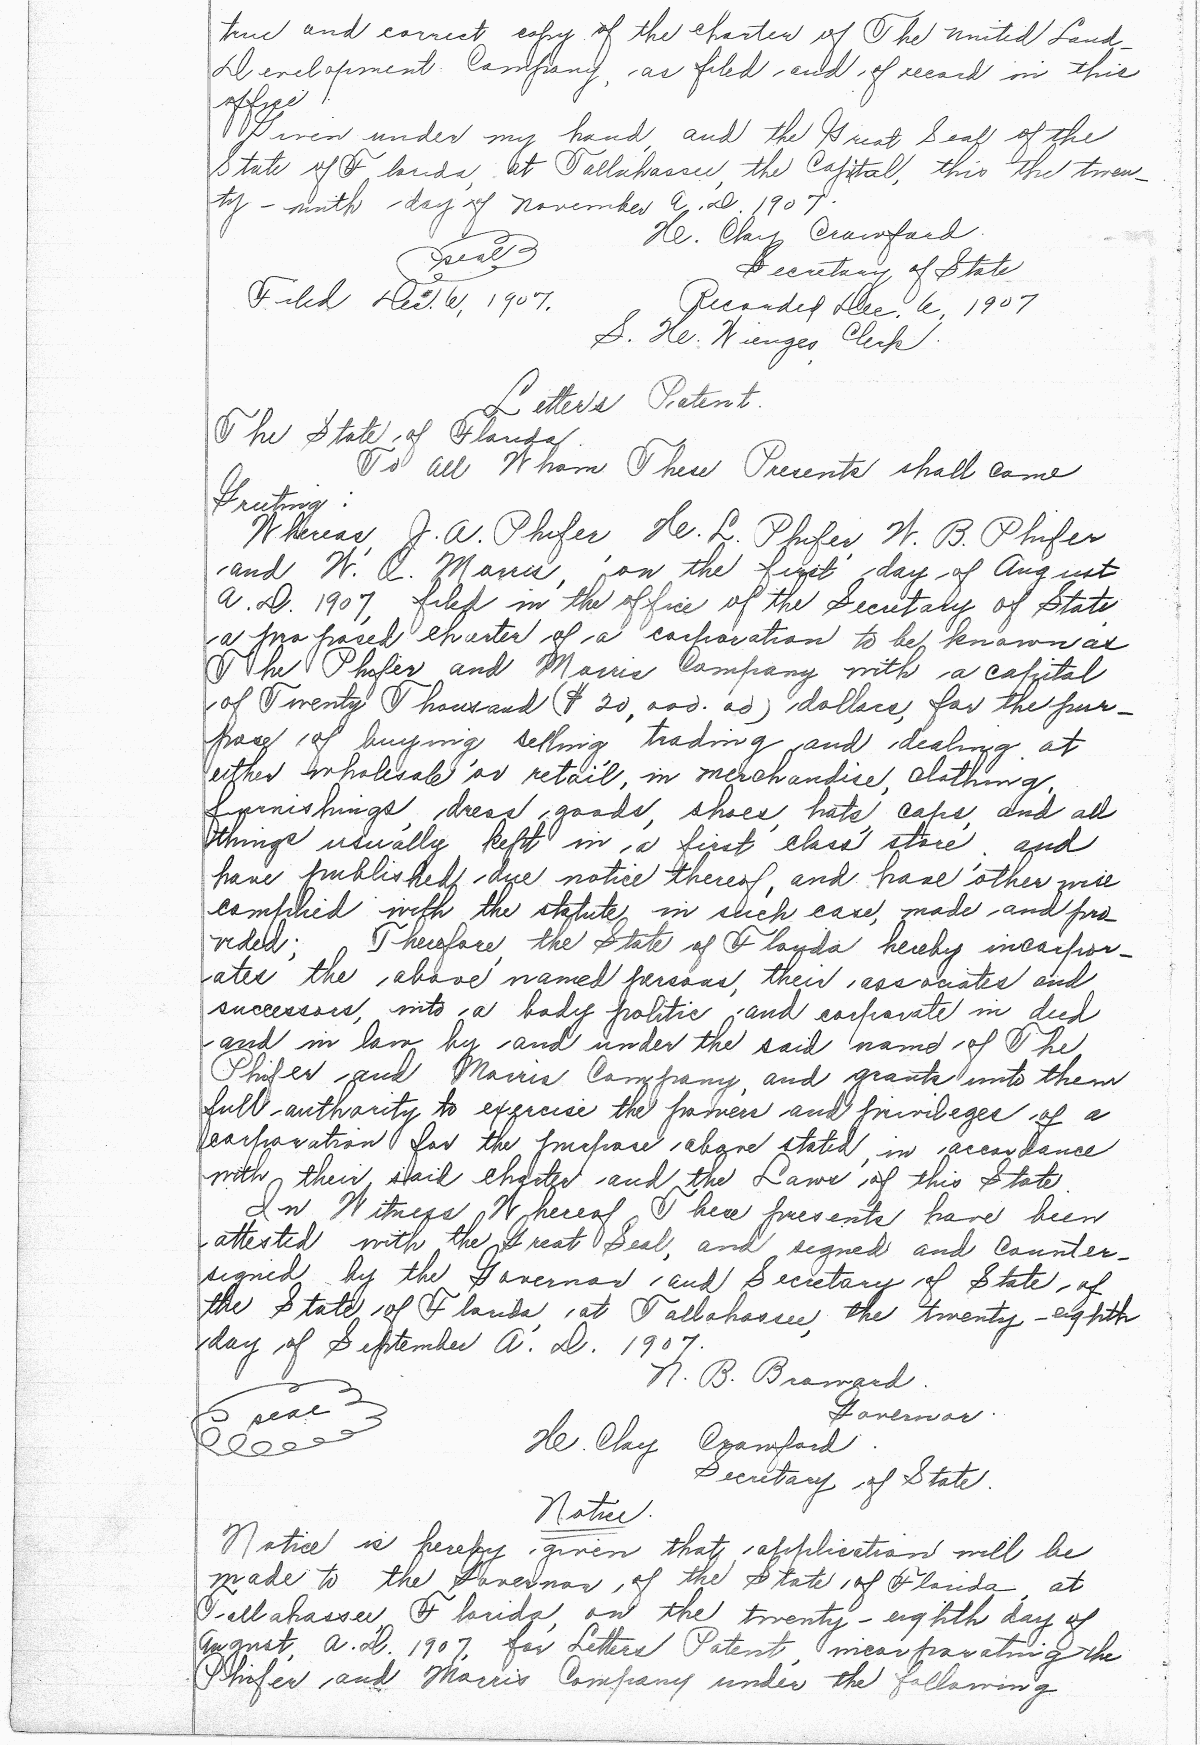 true and correct copy of the charter of The United Land-
Development Company, as filed and of record in this
office.
Given under my hand, and the Great Seal of the
State of Florida, at Tallahassee, the Capital, this the twen-
ty-ninth day of November A.D. 1907.
H. Clay Crawford.
seal
Secretary of State
Filed Dec. 6, 1907.
Recorded Dec. 6, 1907
S. H. Wienges, Clerk.
Letters Patent.
The State of Florida.
To All Whom These Presents shall come
Greeting:
Whereas, J. A. Phifer H. L. Phifer, W. B. Phifer
and W. C. Morris, on the first day of August
A.D. 1907, filed in the office of the Secretary of State
a proposed charter of a corporation to be known as
The Phifer and Morris Company with a capital
of Twenty Thousand ($20,000.00) dollars, for the pur-
pose of buying selling trading and dealing at
either wholesale or retail, in merchandise, clothing,
furnishings, dress goods, shoes, hats, caps, and all
things usually kept in a first class store, and
have published due notice thereof, and have other wise
complied with the statute, in such case, made and pro-
vided; Therefore, the State of Florida hereby incorpor-
ates the above named persons, their associates and
successors, into a body politic and corporate in deed
and in law by and under the said name of The
Phifer and Morris Company, and grants unto them
full authority to exercise the powers and privileges of a
corporation for the purpose above stated, in accordance
with their said charter and the Laws of this State.
In Witness Whereof, These presents have been
attested with the Great Seal, and signed and counter-
signed by the Governor and Secretary of State of
the State of Florida, at Tallahassee, the twenty-eighth
day of September A. D. 1907.
N. B. Broward.
seal
Governor.
H. Clay Crawford.
Secretary of State.
Notice.
Notice is hereby given that application will be
made to the Governor of the State of Florida, at
Tallahassee, Florida, on the twenty-eighth day of
August, A.D. 1907, for Letters Patent, incorporating the
Phifer and Morris Company under the following